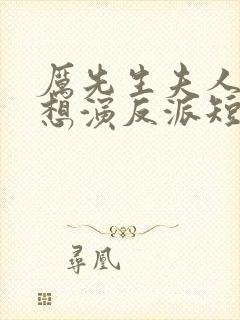 厉先生夫人
想演反派短
寻凰